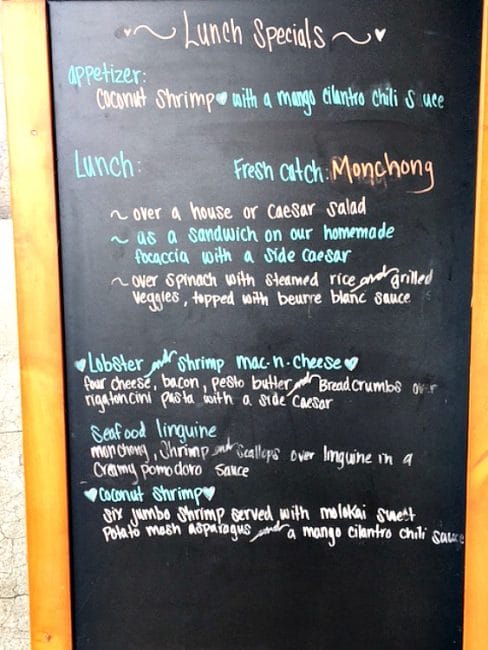 ~ Lunch Specials ~
appetizer:
coconut shrimp with a mango cilantro chili s uce
Lunch: Fresh catch: Monchong
~ over a house or caesar salad
~ as a sandwich on our homemade
focaccia with a side caesar
~ over spinach with steamed rice and grilled
veggies, topped with beurre blanc sauce
Lobster and shrimp mac-n-cheese
four cheese, bacon, pesto butter and Breadcrumbs over
rigatoncini pasta with a side caesar
seafood linguine
monchong, shrimp and scallops over linguine in a
creamy pomodoro sauce
coconut shrimp
six jumbo shrimp served with molokai sweet
potato mash asparagus and a mango cilantro chili sauce